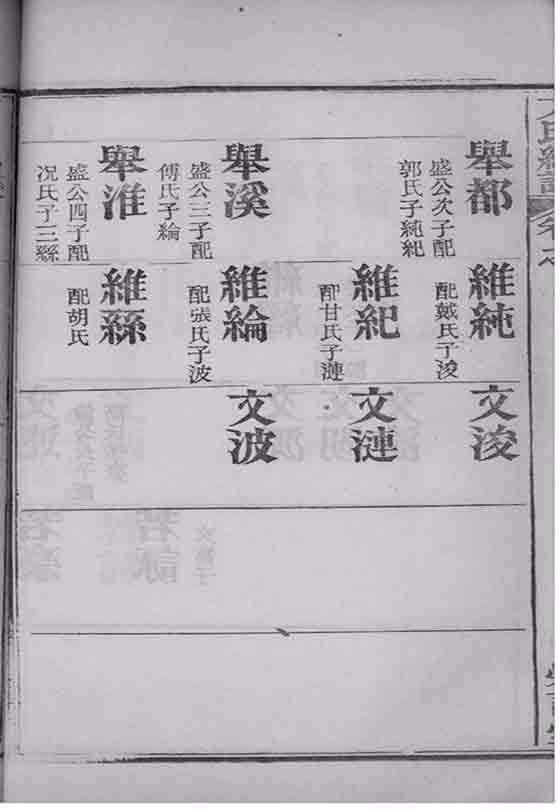 舉都
盛公次子配
郭氏子純紀
舉溪
盛公三子配
傅氏子綸
舉淮
盛公四子配
况氏子三
維純
配戴氏子浚
維紀
配甘氏子漣
維綸
配張氏子波
維
配胡氏
文浚
文漣
文波